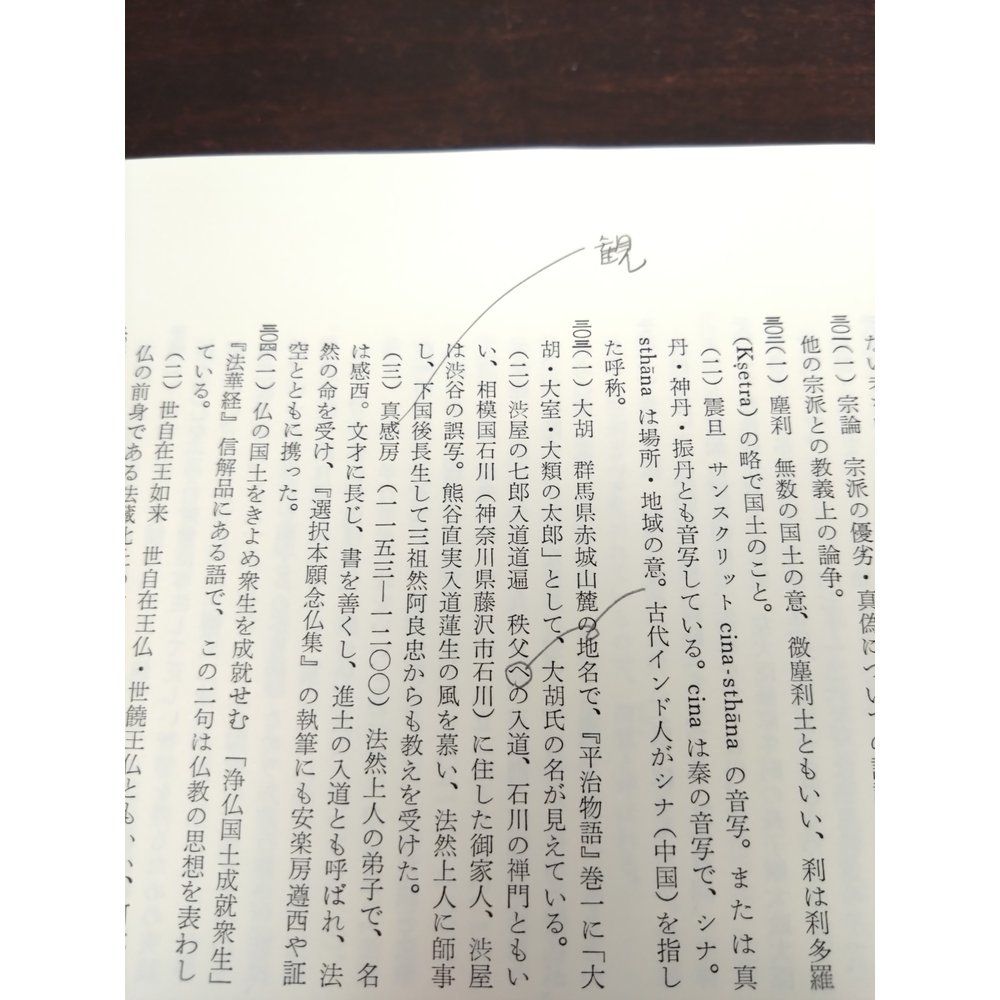 観
三〇二(一) 宗論 宗派の優劣・真偽について
他の宗派との教義上の論争。
三〇三(一) 塵刹 無数の国土の意、微塵刹土ともいい、刹は刹多羅
(Kṣetra) の略で国土のこと。
(二) 震旦 サンスクリット cina-sthāna の音写。または真
丹・神丹・振丹とも音写している。cina は秦の音写で、シナ。
sthāna は場所・地域の意。古代インド人がシナ(中国)を指し
た呼称。
三〇三(一) 大胡 群馬県赤城山麓の地名で、『平治物語』巻一に「大
胡・大室・大類の太郎」として、大胡氏の名が見えている。
(二) 渋屋の七郎入道道遍 秩父への入道、石川の禅門ともい
い、相模国石川(神奈川県藤沢市石川)に住した御家人、渋屋
は渋谷の誤写。熊谷直実入道蓮生の風を慕い、法然上人に師事
し、下国後長生して三祖然阿良忠からも教えを受けた。
(三) 真感房 (一一五三―一二〇〇) 法然上人の弟子で、名
は感西。文才に長じ、書を善くし、進士の入道とも呼ばれ、法
然の命を受け、『選択本願念仏集』の執筆にも安楽房遵西や証
空とともに携った。
三〇四(一) 仏の国土をきよめ衆生を成就せむ 「浄仏国土成就衆生」
『法華経』信解品にある語で、この二句は仏教の思想を表わし
ている。
(二) 世自在王如来 世自在王仏・世饒王仏ともいい、
仏の前身である法蔵